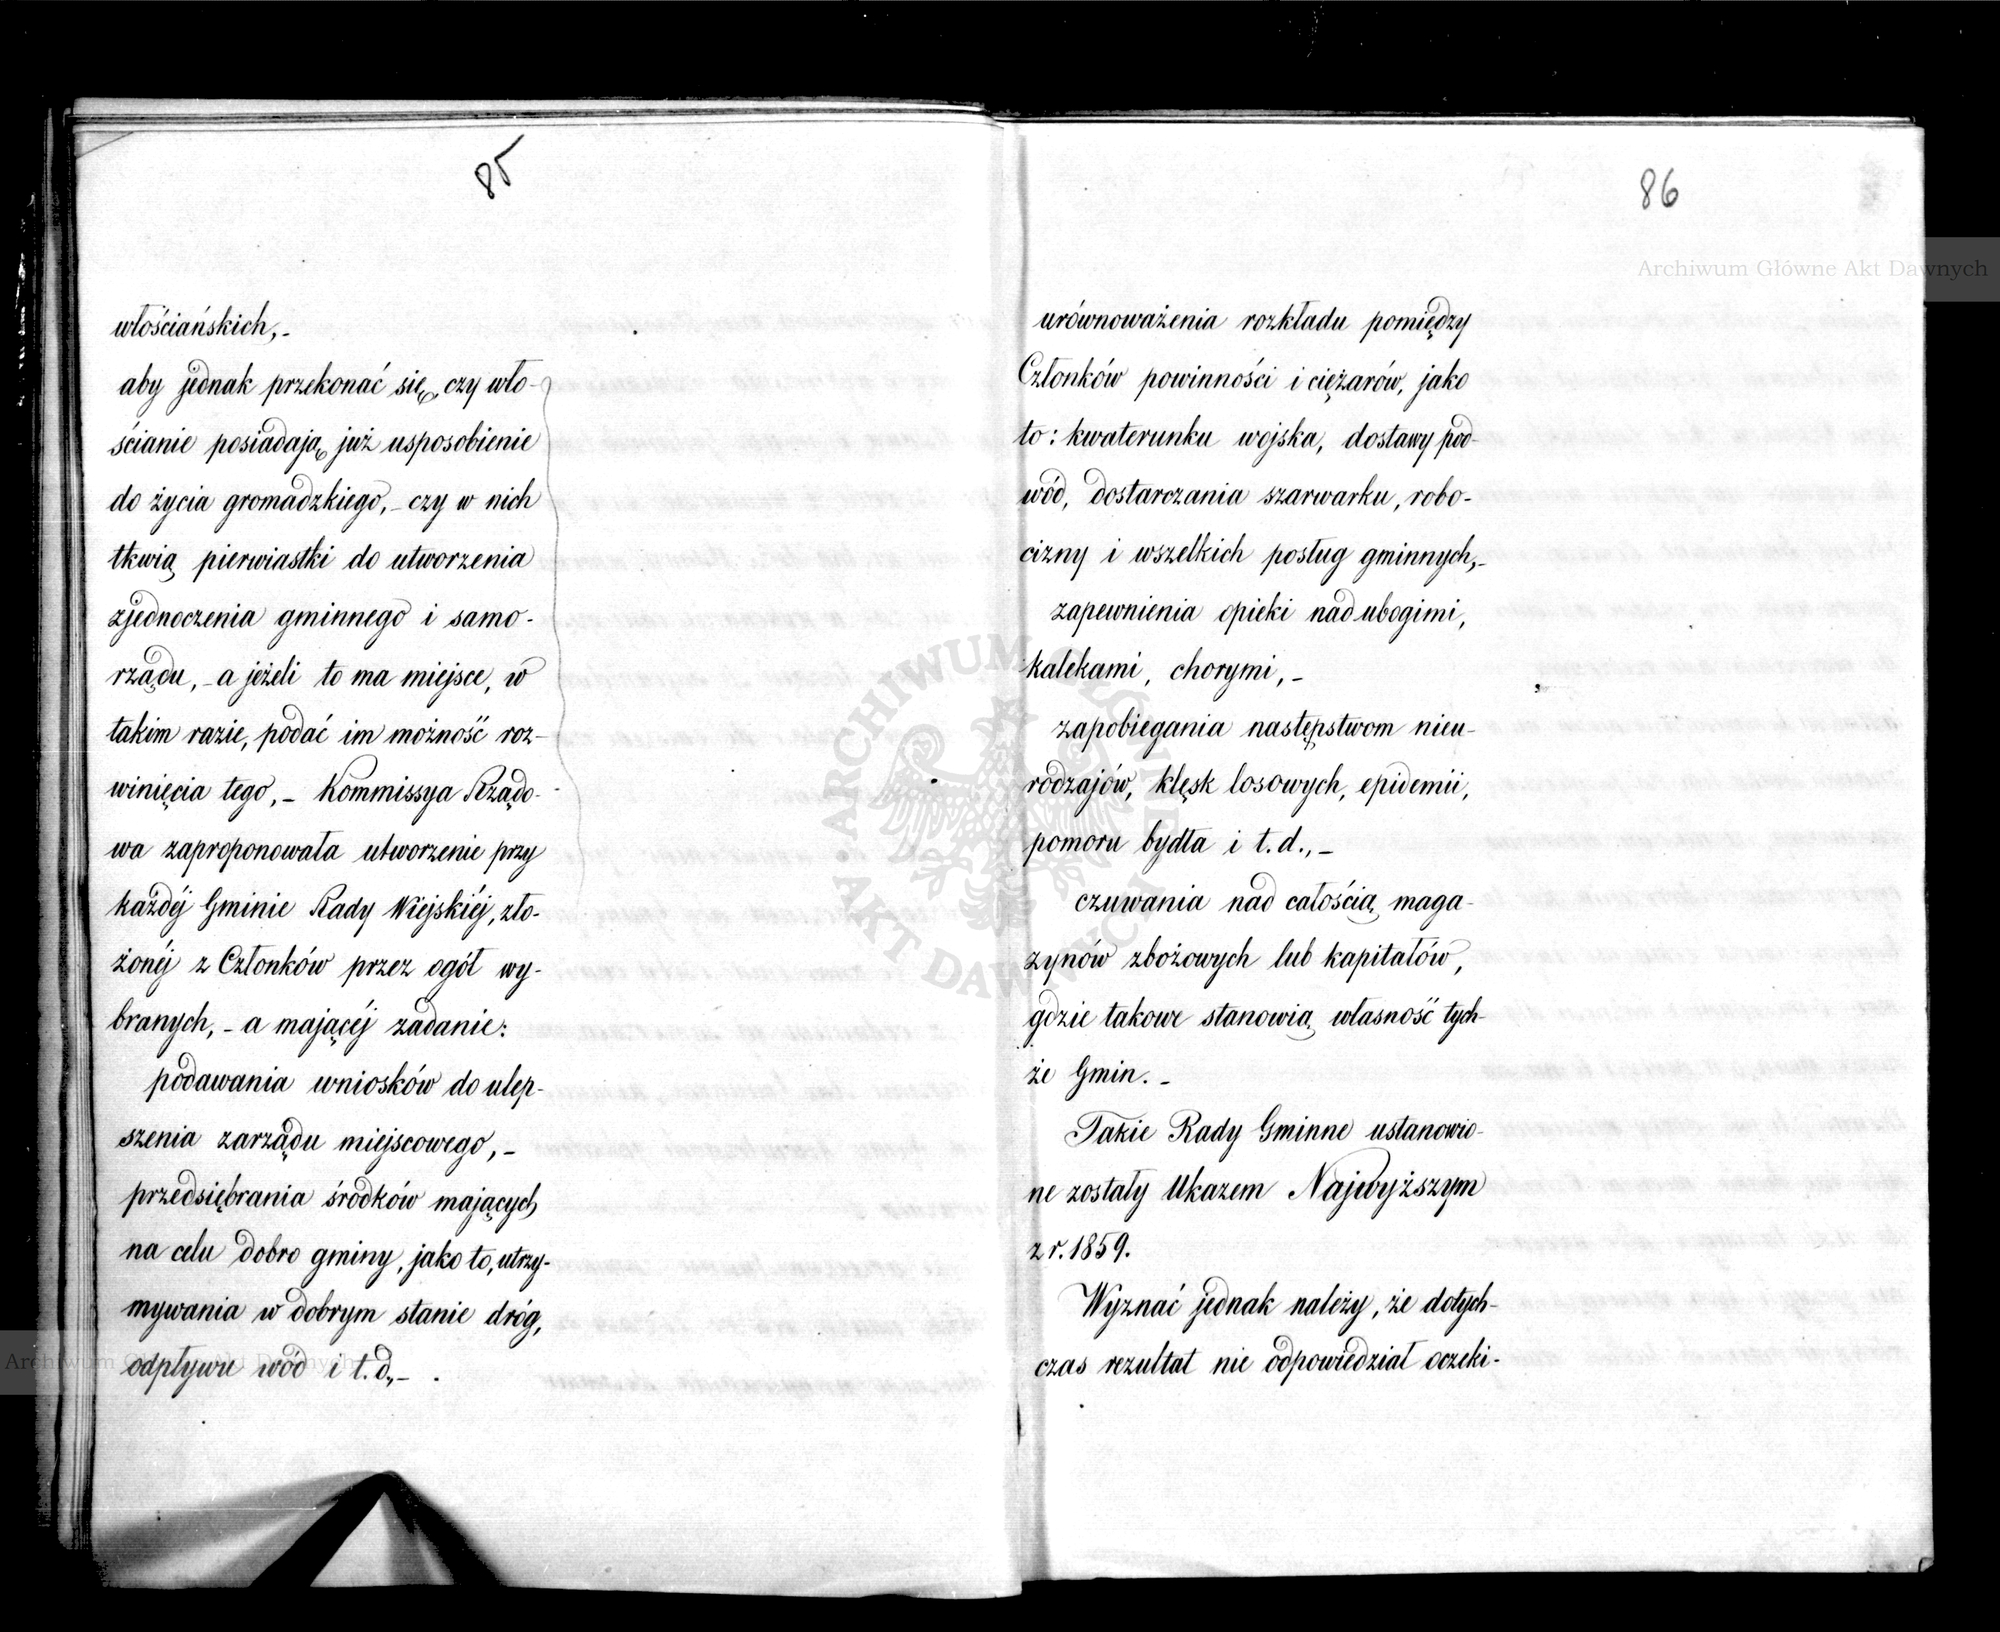 85
włościańskich, –
aby jednak przekonać się, czy wło-
ścianie posiadają już usposobienie
do życia gromadzkiego, – czy w nich
tkwią pierwiastki do utworzenia
zjednoczenia gminnego i samo-
rządu, – a jeżeli to ma miejsce, w
takim razie, podać im możność roz-
winięcia tego, – Kommissya Rządo-
wa zaproponowała utworzenie przy
każdéj Gminie Rady Wiejskiéj, zło-
żonéj z Członków przez ogół wy-
branych, – a mającéj zadanie:
podawania wniosków do ulep-
szenia zarządu miejscowego, –
przedsiębrania środków mających
na celu dobro gminy, jako to, utrzy-
mywania w dobrym stanie dróg,
odpływu wód i t.d., –
86
urównoważenia rozkładu pomiędzy
Członków powinności i ciężarów, jako
to: kwaterunku wojska, dostawy pod-
wód, dostarczania szarwarku, robo-
cizny i wszelkich posług gminnych, –
zapewnienia opieki nad ubogimi,
kalekami, chorymi, –
zapobiegania następstwom nieu-
rodzajów, klęsk losowych, epidemii,
pomoru bydła i t.d., –
czuwania nad całością maga-
zynów zbożowych lub kapitałów,
gdzie takowe stanowią własność tych-
że Gmin. –
Takie Rady Gminne ustanowio-
ne zostały Ukazem Najwyższym
z r. 1859.
Wyznać jednak należy, że dotych-
czas rezultat nie odpowiedział oczeki-
Archiwum Główne Akt Dawnych
ARCHIWUM GŁÓWNE AKT DAWNYCH
Archiwum Główne Akt Dawnych